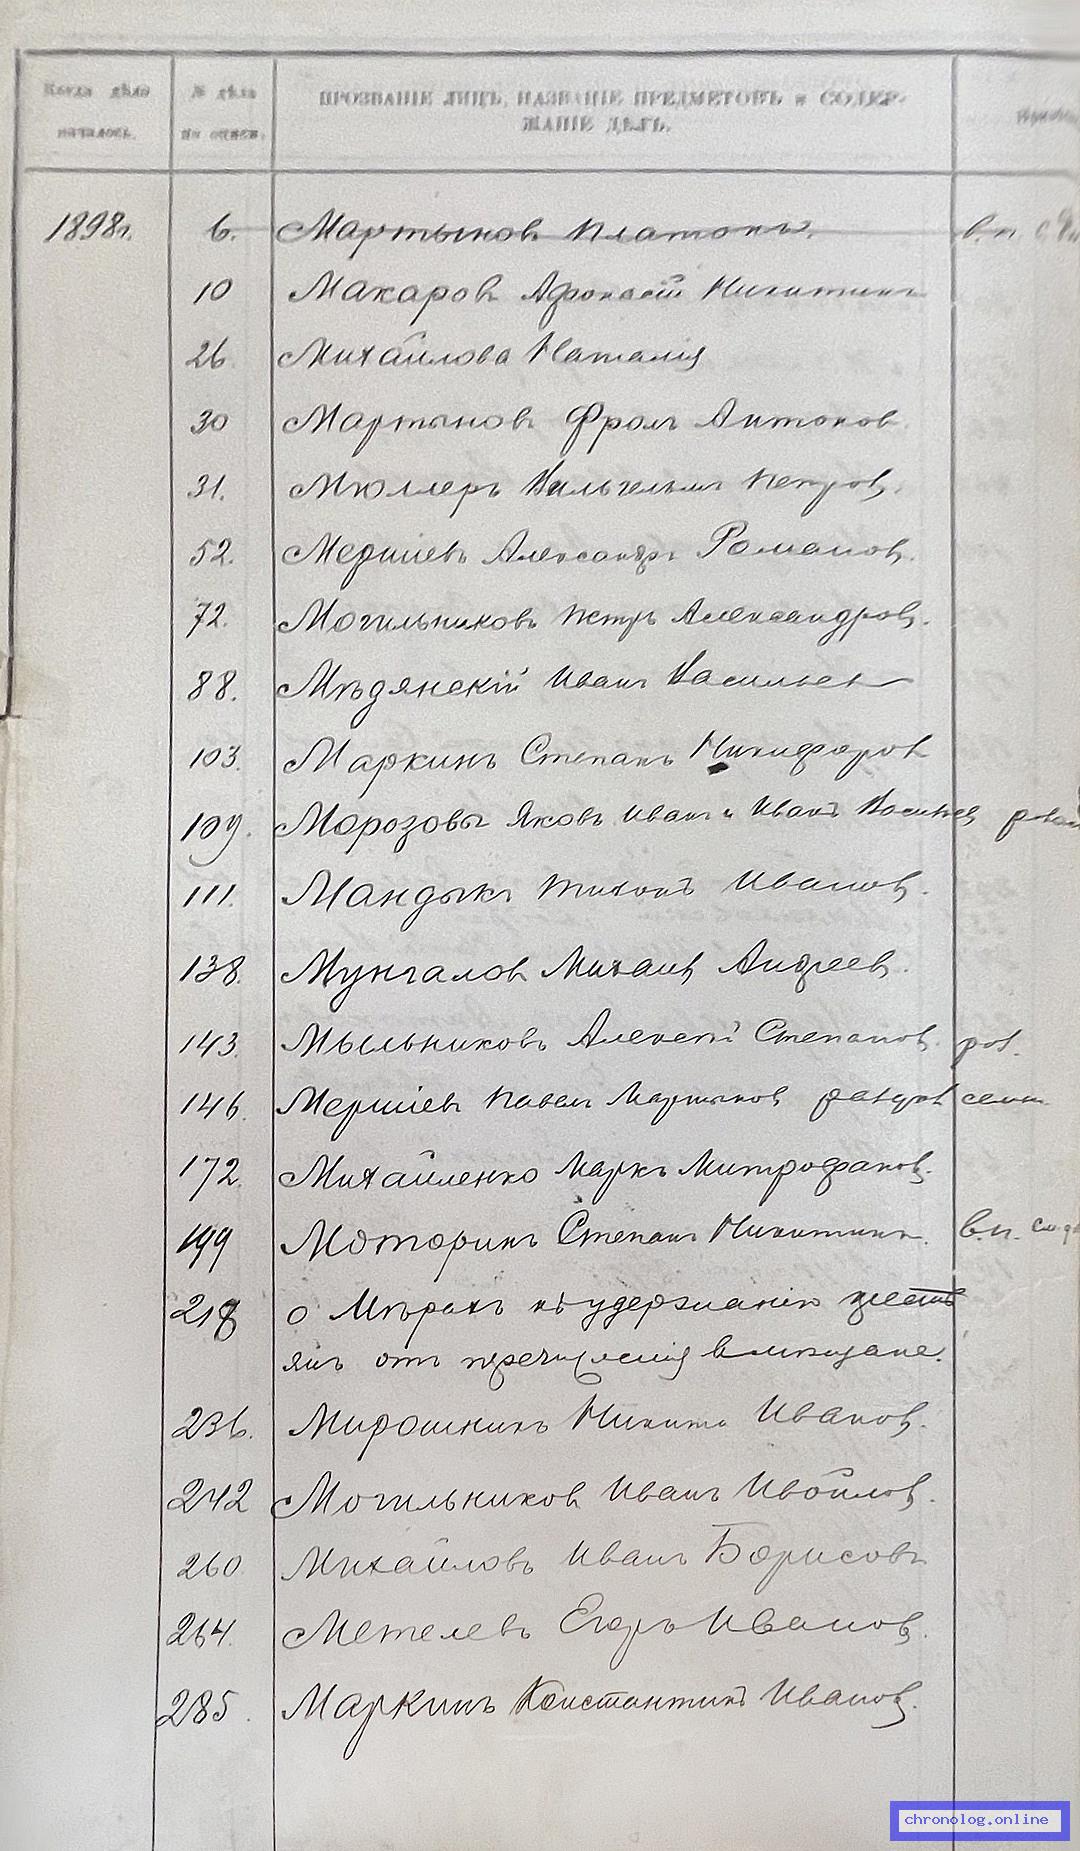 Когда дѣло № дѣла ПРОЗВАНІЕ ЛИЦЪ, НАЗВАНІЕ ПРЕДМЕТОВЪ и СОДЕР-
началось. по описи. ЖАНІЕ ДѢЛЪ.
1898г. 6. Мартынов Платонъ. в. п.
10 Макаров Афонасій Никитинъ
26 Михайлова Наталія
30 Мартынов Фролъ Антонов
31. Мюллеръ Вильгельмъ Петров.
52. Мершіевъ Александръ Романов.
72. Могильниковъ Петръ Александров.
88. Мѣдянскій Иванъ Васильев
103. Маркинъ Степанъ Никифоров
109. Морозовы Яковъ Иванъ и Иванъ Васильев
111. Мандыкъ Тихонъ Иванов.
138. Мунгалов Михаил Андреев.
143. Мыльниковъ Алексей Степанов. роз.
146. Мершіевъ Павел Мартынов
172. Михайленко Маркъ Митрофанов.
199 Моторинъ Степанъ Никитинъ. в.п.
218 о Мѣрахъ къ удержанію крест
янъ отъ перечисленія в мещане.
236. Мирошникъ Никита Иванов.
242 Могильников Иванъ Ивойлов.
260 Михайловъ Иванъ Борисовъ
264. Метелевъ Егоръ Иванов.
285. Маркинъ Константинъ Иванов.
chronolog.online